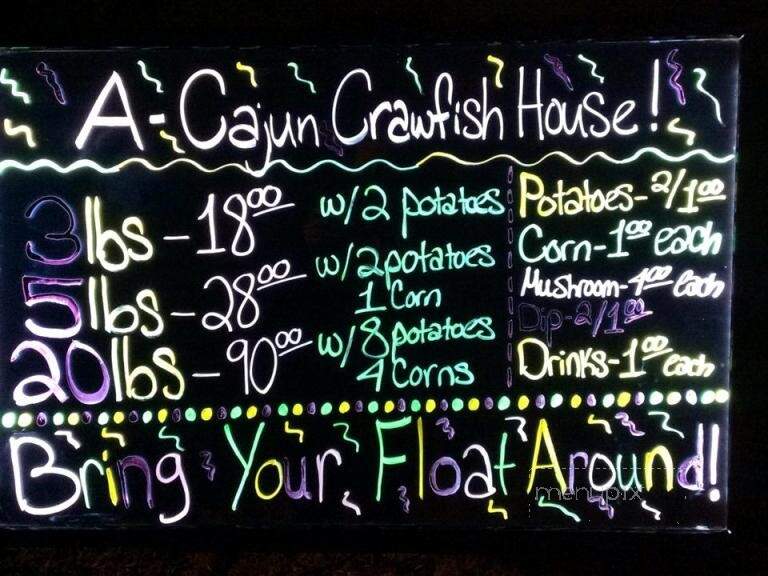 A-Cajun Crawfish House!
3lbs - 18⁰⁰ w/2 potatoes
5lbs - 28⁰⁰ w/2 potatoes
1 Corn
20lbs - 90⁰⁰ w/8 potatoes
4 Corns
Potatoes - 2/1⁰⁰
Corn - 1⁰⁰ each
Mushroom - 4⁰⁰ each
Dip - 2/1⁰⁰
Drinks - 1⁰⁰ each
Bring Your Float Around!
menupix